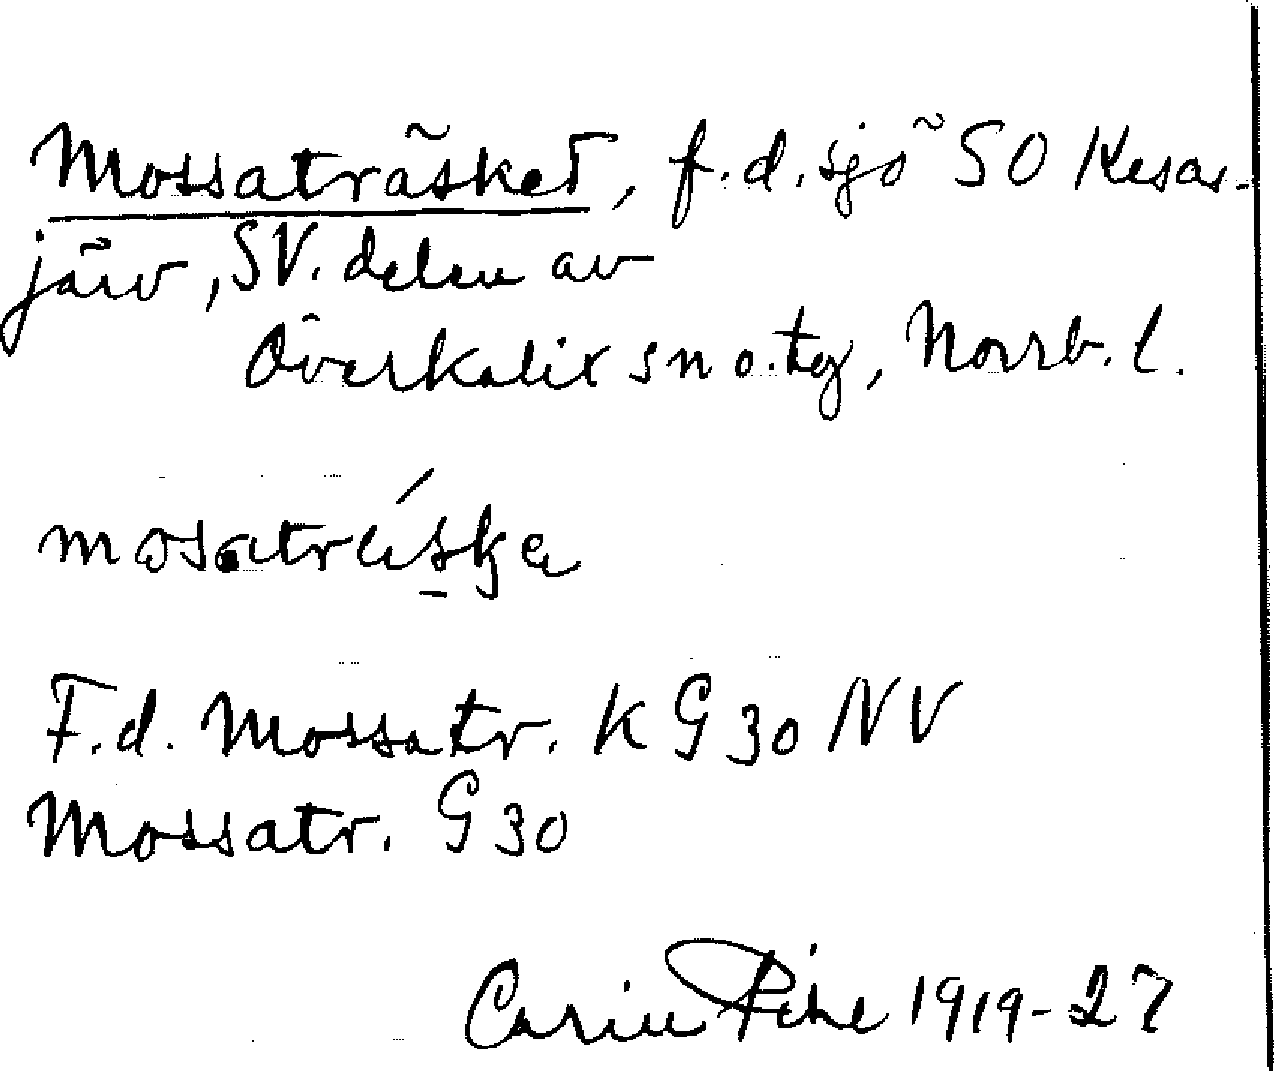 Mossaträsket, f.d. sjö SO Kesas-
järv, SV. delen av
Överkalix sn o. tg, Norrb. l.
mosatrȧske
F.d. Mossatr. K G 30 NV
Mossatr. G 30
Carin Pihl 1919-27